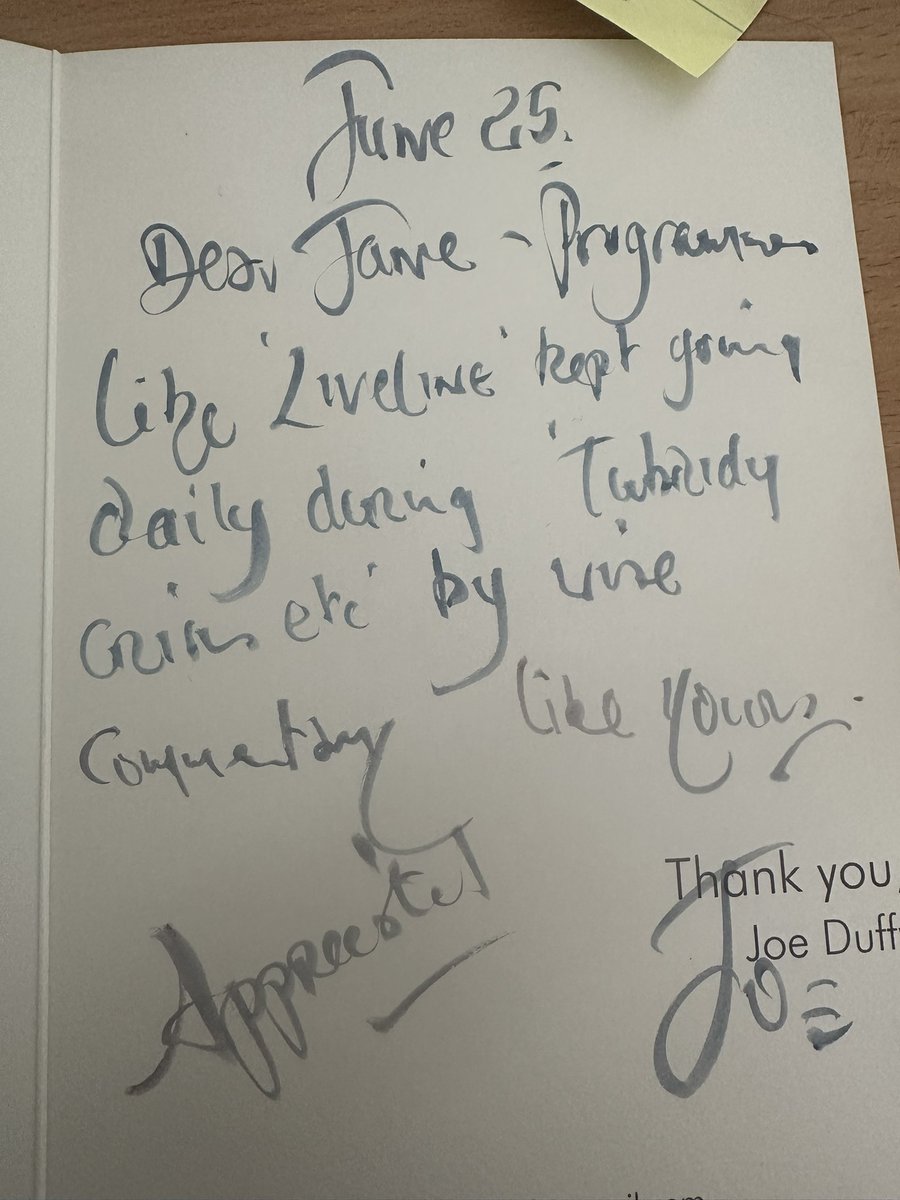 June 25.
Dear Jane - Programmes
like 'Liveline' kept going
daily during 'Tubridy
crisis etc' by wise
commentary like yours.
Appreciated
Thank you,
Joe Duffy
Joe